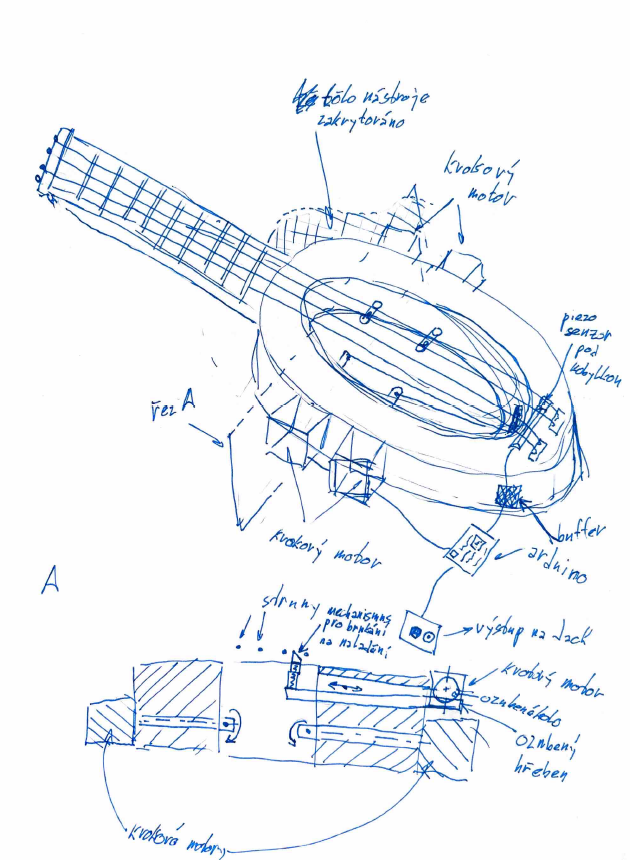 tělo nástroje
zakrytováno
krokový
motor
piezo
senzor
pod
kobylkou
řez A
krokový motor
buffer
arduino
A
struny
mechanismus
pro brnkání
na
výstup na Jack
krokový motor
ozubené kolo
ozubený
hřeben
krokové motory